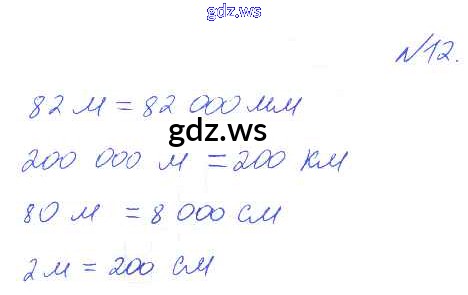 gdz.ws
№12.
82 м = 82 000 мм
gdz.ws
200 000 м = 200 км
80 м = 8 000 см
2 м = 200 см